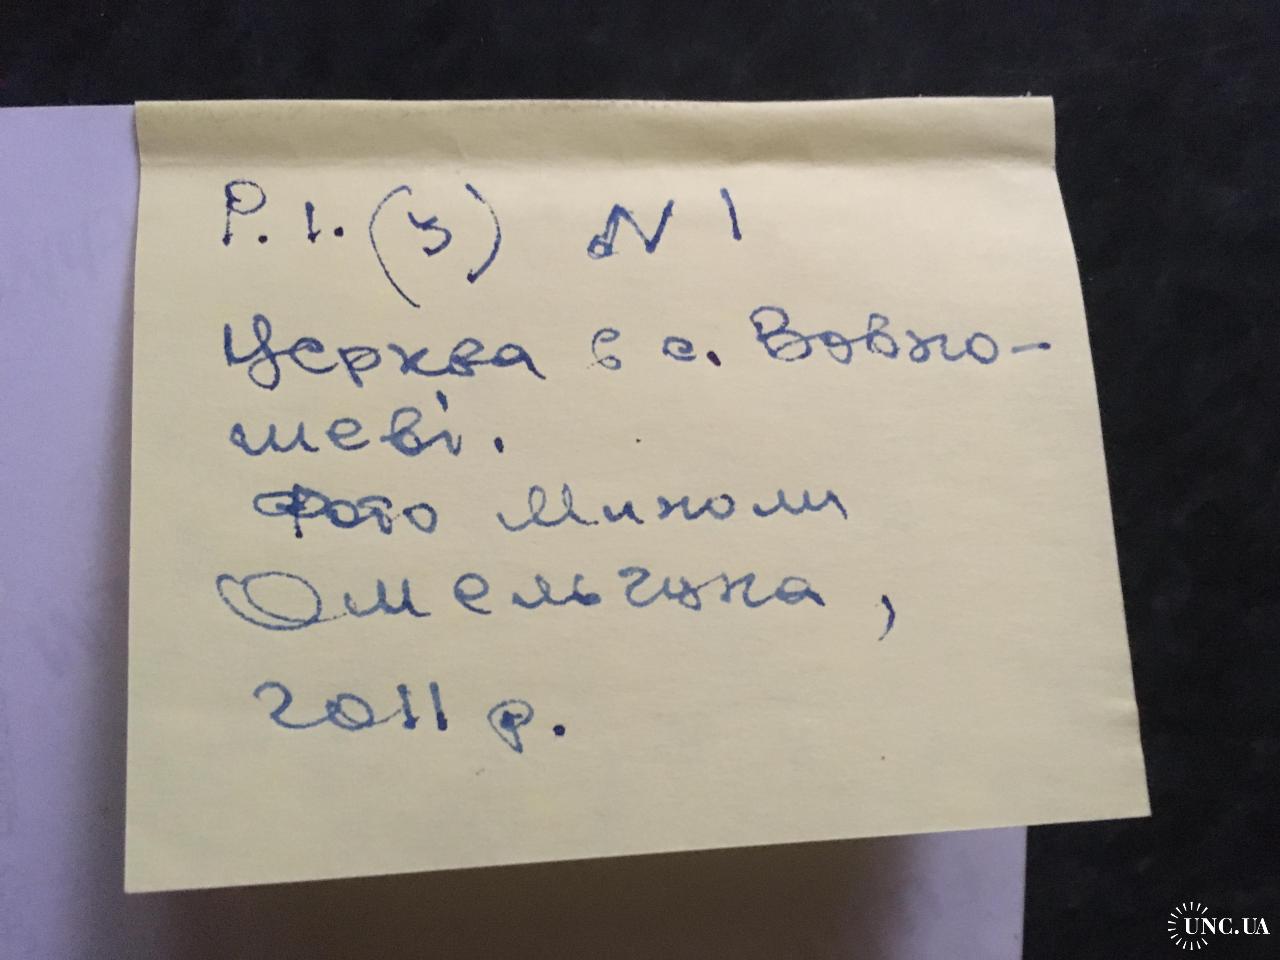 Р. 1. (з) N 1
Церква в с. Вовко-
шеві.
Фото Миколи
Омельчука,
2011 р.
UNC.UA